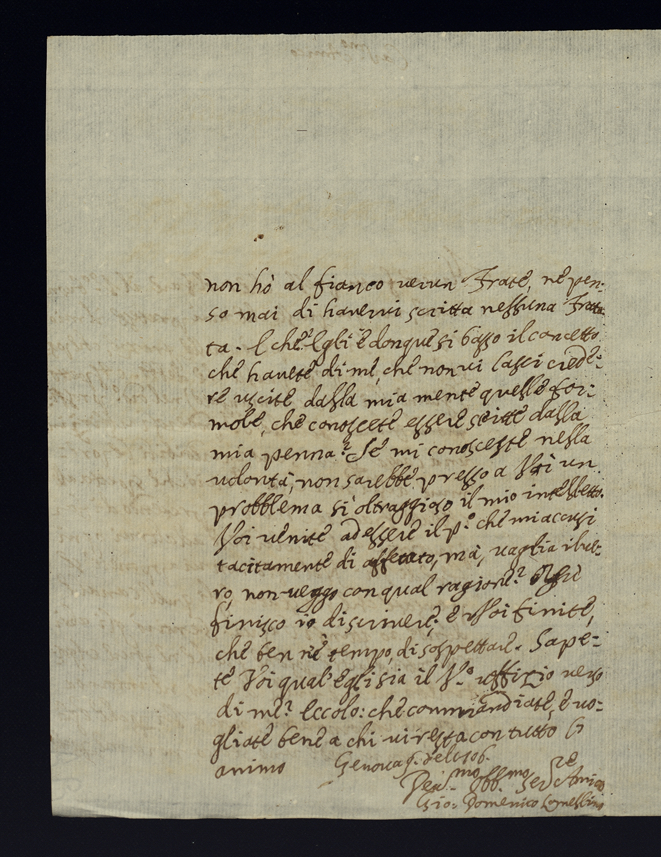 non hò al fianco verun Frate, nè pen-
so mai di havervi scritta nessuna Fratta
ta. E che? Egli è donque si basso il concetto
che havete di me, che non vi lasci crede-
re uscite dalla mia mente quelle for-
mole, che conoscete essere scritte dalla
mia penna? Se mi conosceste nella
volontà, non sarebbe presso a Voi un
probblema sì oltraggioso il mio intelletto.
Voi venite ad essere il p.o che mi accusi
tacitamente di affettato, mà, vaglia il ve-
ro, non veggo con qual ragione?
finisco io di scrivere; e Voi finite,
che ben n'è tempo, di sospettare. Sape-
te Voi qual'egli sia il V.o uffizio verso
di me? Eccolo: che commandiate, e vo-
gliate bene a chi vi resta con tutto l'
animo Genova 9. del 1706.
Dev.mo Obb.mo Ser.re Amico
Gio: Domenico Lomellino